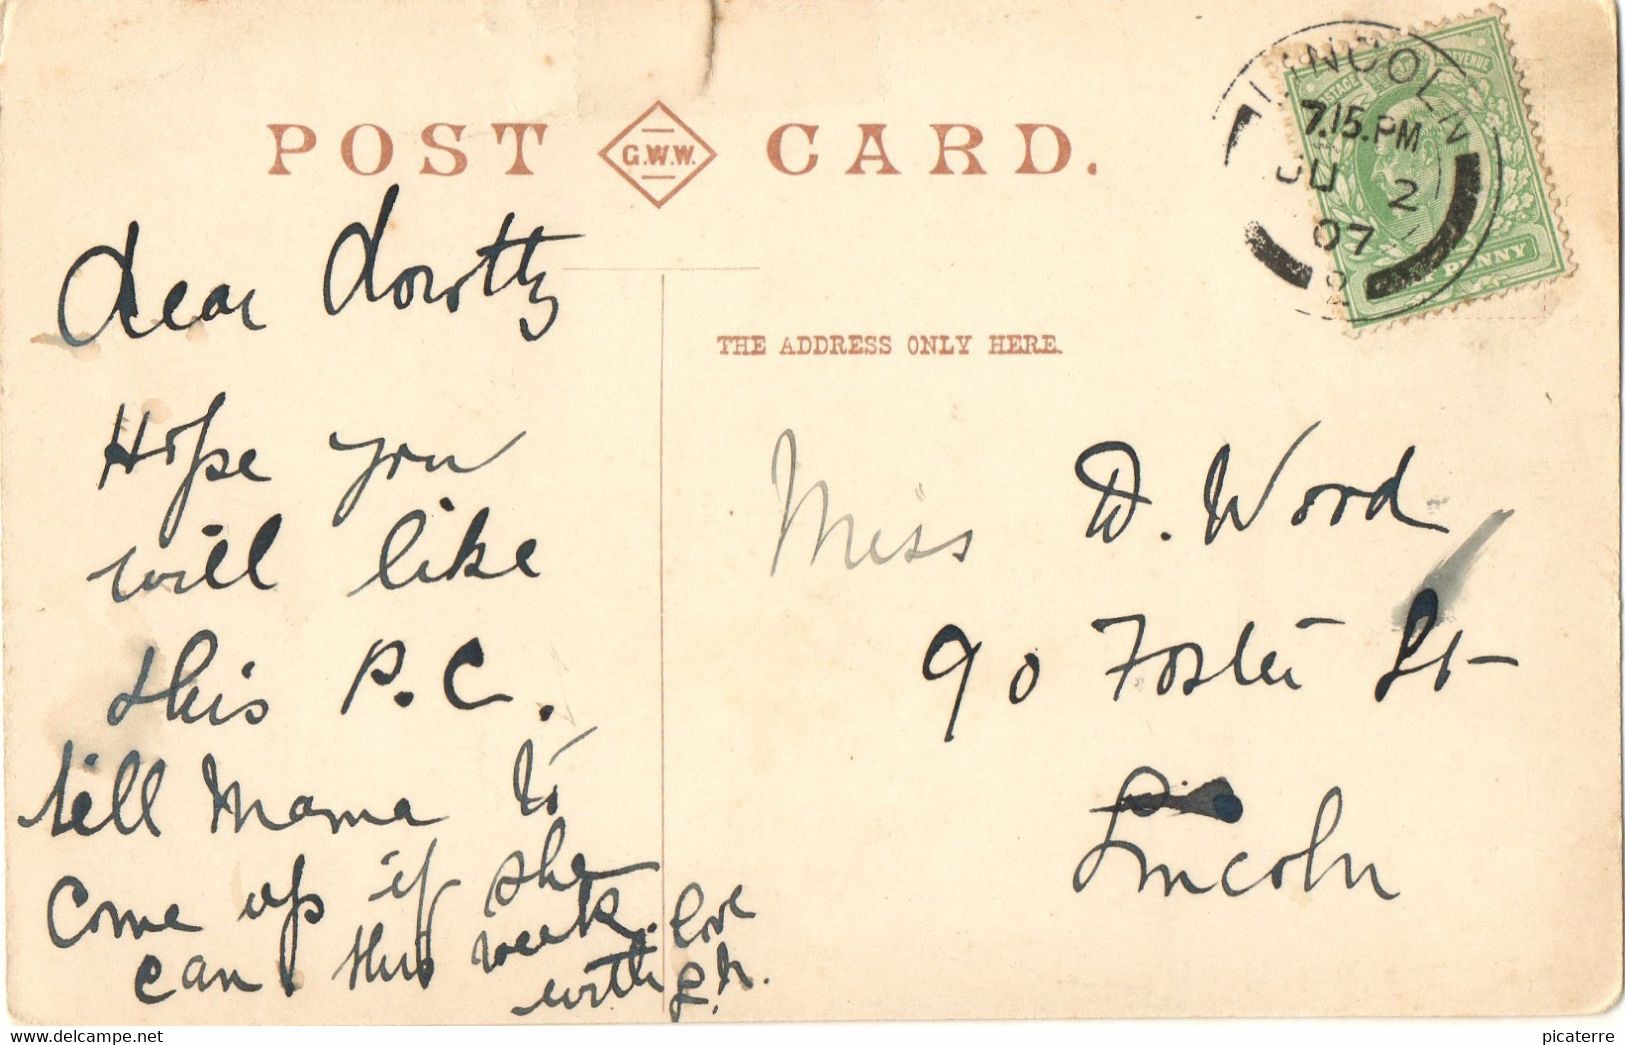 POST G.W.W. CARD.
LINCOLN
7.15.PM
JU 2
07
POSTAGE REVENUE
PENNY
THE ADDRESS ONLY HERE.
Dear Dorothy
Hope you
will like
this P.C.
tell Mama to
come up if she
can this week.
with love
Miss D. Wood
90 Foster St
Lincoln
picaterre